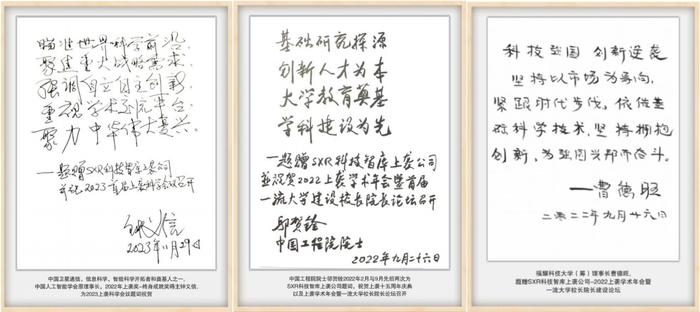 瞄准世界科学前沿,
聚焦重大战略需求,
强调自立自主创新,
重视学术研究平台,
聚力中华伟大复兴。
—题赠SXR科技智库上袭公司
并祝2023首届上袭科学会议召开
2023年11月29日
中国卫星通信、信息科学、智能科学开拓者和奠基人之一,
中国人工智能学会原理事长,2022年上袭奖-终身成就奖得主钟义信,
为2023上袭科学会议题词祝贺
基础研究探源
创新人才为本
大学教育奠基
学科建设为先
—题赠SXR科技智库上袭公司
并祝贺2022上袭学术年会暨首届
一流大学建设校长院长论坛召开
邬贺铨
中国工程院院士
2022年九月二十六日
中国工程院院士邬贺铨2022年2月与9月先后两次为
SXR科技智库上袭公司题词,祝贺上袭十五周年庆典
以及上袭学术年会暨一流大学校长院长论坛召开
科技强国 创新逆袭
坚持以市场为导向,
紧跟时代步伐,依依基
础科学技术,坚持拥抱
创新,为强国兴邦而奋斗。
—曹德旺
二零二二年九月廿六日
福耀科技大学(筹)理事长曹德旺,
题赠SXR科技智库上袭公司-2022上袭学术年会暨
一流大学校长院长建设论坛